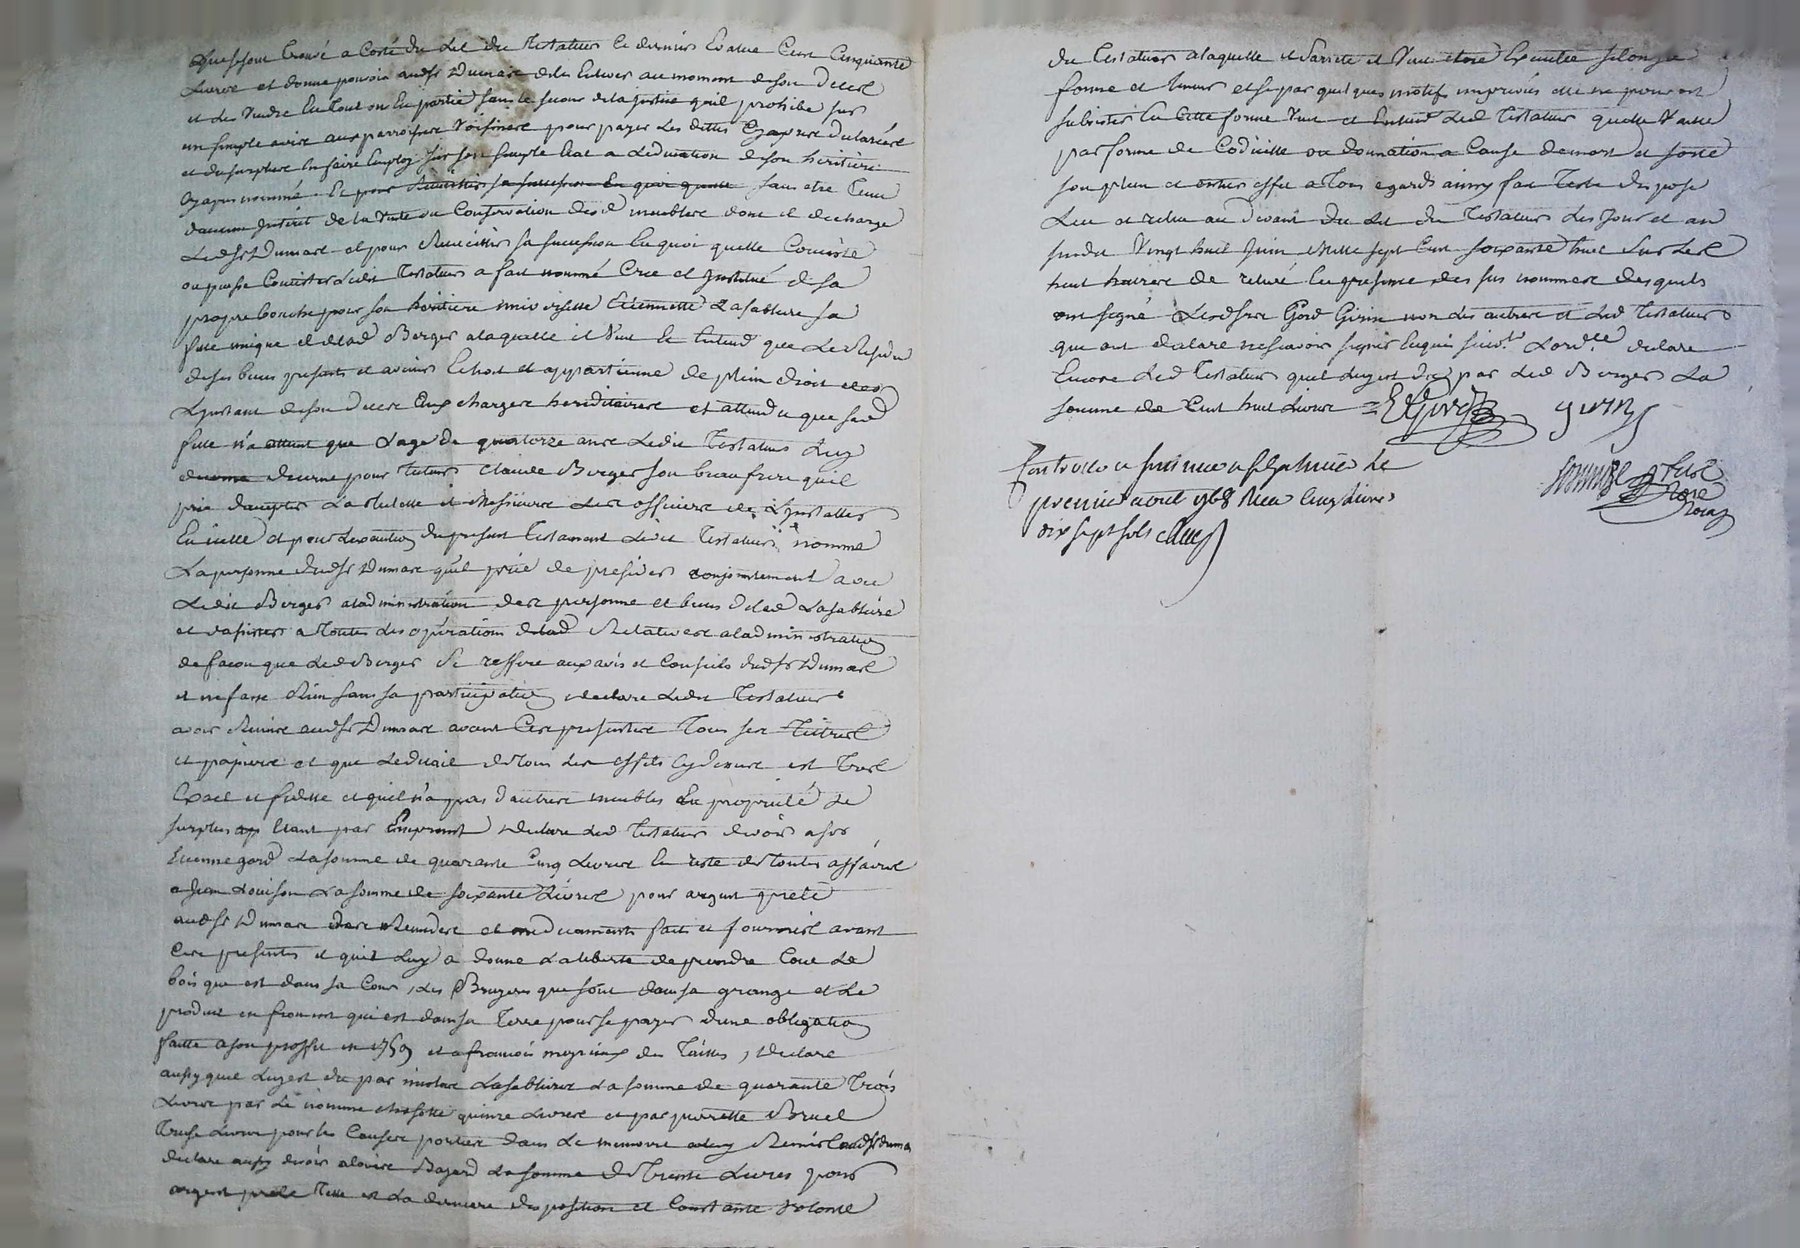 que sont trouvé a Coté du Lit du Testateur le dernier Evalué Cent Cinquante
Livres et donne pouvoir audsr Dumas de les Enlever au moment de son decest
et les Vendre En Tout ou En partie sans le secour de la justice quil prohibe sur
un simple avis aux parroisses Voisines pour payer les dettes Cy apres declarées
et du surplus En faire Employ sur son simple Etat a Leducation de son heritiere
Cy apres nommé. Et pour sans etre Tenu
daucun Interet de la Vente ou Conservation desd meubles dont il decharge
Ledsr Dumas et pour Sa succession En quoi quelle Consiste
ou puisse Consister Ledit Testateur a fait nommé Crée et Institué de sa
propre bouche pour son heritiere universelle Etiennette Lasabliere sa
fille unique et delad Berger a laquelle il Veut et Entend que Le Residu
de ses biens presents et avenirs Echoit et appartienne de plein droit des
Linstant de son decest aux charges hereditaires et attendu que sad
fille n'a attint que Lage de quatorze ans Ledit Testateur Luy
decerne pour tuteur Claude Berger son beaufrere quil
prie daccepter La tutelle et Messieurs Les officiers de Linstaller
En icelle et pour Lexecution du present Testament Ledit Testateur nomme
La personne dudsr Dumas quil prie de presider conjointement avec
Ledit Berger a ladministration des personne et biens delad Lasabliere
et dassister a Toutes les operations delad Relatives a ladministration
de facon que Led Berger Se reffere aux avis et Conseils dudsr Dumas
et ne fasse Rien sans sa participation, declare Ledit Testateur
avoir Remis audsr Dumas avant Ces presentes Tous ses Tittres
et papiers et que Le detail de tous Les effets Cy dessus est Tres
Exact et fidelle et quil n'a pas dautres meubles En propriété Le
surplus Etant par Emprunt, declare Led Testateur devoir a sr
Etienne gord La somme de quarante Cinq Livres En reste de toutes affaires
a Jean Louison La somme de soixante Livres pour argent preté
audsr Dumas des Remedes et medicaments faits et fournis avant
Ces presentes et quil Luy a donné La liberté de prendre Tout Le
bois que est dans sa Cour, Les Bruyeres que sont dans sa grange et Le
produit en froment qui est dans sa Terre pour se payer dune obligation
faitte a son proffit en 1759 et a francois meyrieux des Taittes, declare
aussy quil Luy est du par nicolas Lasabliere La somme de quarante Trois
Livres par Le nommé quinze Livres et par pierrette Bruel
Treise Livres pour les Causes portées dans Le memoire Remis audsr duma
declare aussy devoir a Bayard La somme de Trente Livres pour
argent preté Telle est La derniere disposition et Constante volonté
du Testateur a laquelle il Sarrete et Veut etre Executée selon sa
forme et teneur et si par quelques motifs imprevus elle ne pouvoit
subsister En Cette forme Veut et Entend Led Testateur quelle Vaille
par forme de Codicille ou donnation a Cause de mort et sorte
son plein et entier effet a Tous egards ainsy fait Testé disposé
Leu et releu au devant du Lit du Testateur Les Jour et an
susdit Vingt huit Juin Mille sept Cent soixante huit Sur Les
huit heures de relevé En presence des sus nommes desquels
ont signé Lesdsrs Gord Girin non les autres et Led Testateur
que ont declaré ne scavoir signer Enquis suivt Lordce declare
Encore Led Testateur quil Luy est du par Led Berger La
somme de Cent huit Livres = EGord girin
Controllé a le
premier aout 1768 Reçu Cinq Livres
dix sept sols